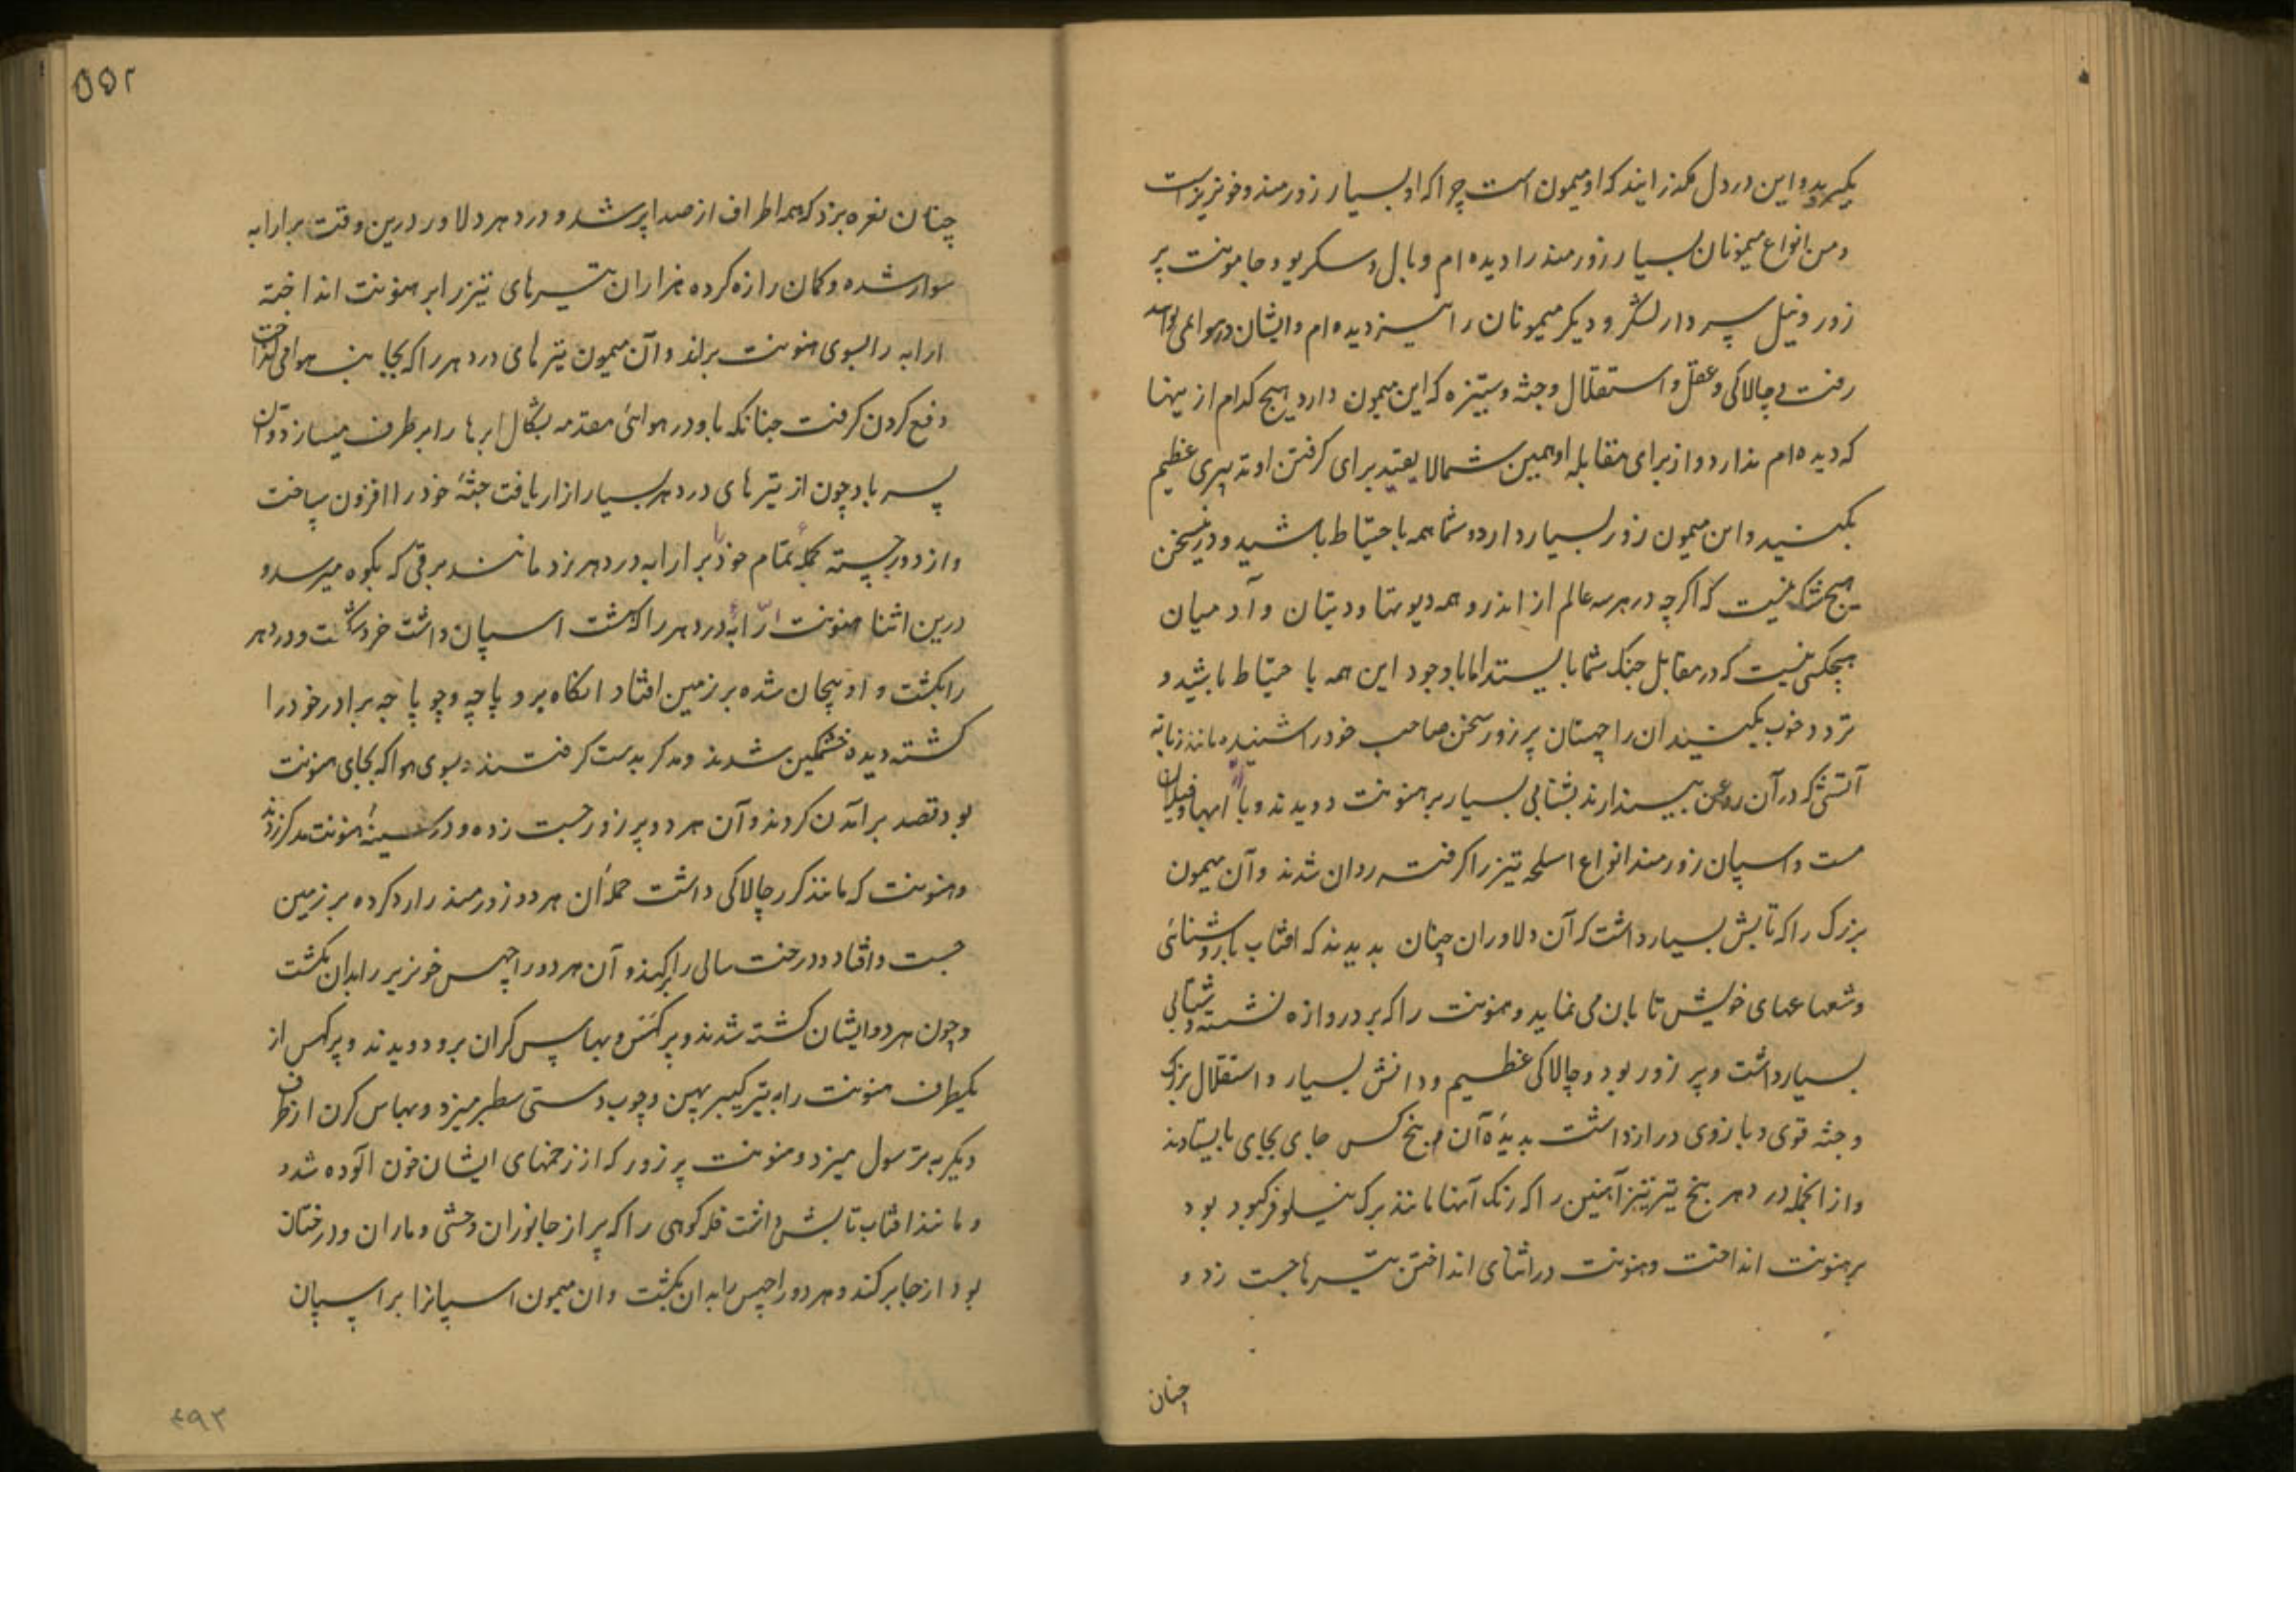 بگیرید و این در دل مگذرانید که او میمون است چرا که او بسیار زورمند و خونریز است
و من انواع میمونان بسیار زورمند را دیده ام و بال و سکریو و جامونت پر
زور و نیل سپردار لشکر و دیگر میمونان را نیز دیده ام و ایشان در هوا می توانند
رفت لیے چالاکی و عقل و استقلال و جثه و ستیزه که این میمون دارد هیچ کدام از ینها
که دیده ام ندارد و از برای مقابله او همین شمالایقید برای گرفتن او تدبیری عظیم
بکنید و این میمون زور بسیار دارد و شما همه با حتیاط باشید و درینسخن
هیچ شک نیست که اگرچه در هر سه عالم از اندر و همه دیوتها و دیتان و آدمیان
هیچکس نیست که در مقابل جنک شما بایستد اما باوجود این همه با حتیاط باشید و
تردد خوب بکنید ان راچهسان پر زور سخن صاحب خود را شنیده مانند زبانه
آتشی که در آن روغن بیندازند بشتابی بسیار بر هنونت دویدند و با ارابها و فیلان
مست و اسپان زورمند انواع اسلحه تیز را گرفته روان شدند و آن میمون
بزرک را که تابش بسیار داشت که آن دلاوران چنان بدیدند که افتاب با روشنائی
و شعاعهای خویش تابان می نماید و هنونت را که بر دروازه نشسته و شتابی
بسیار داشت و پر زور بود و چالاکی عظیم و دانش بسیار و استقلال بزرک
و جثه قوی و بازوی دراز داشت بدیده آن هر پنج کس جای بجای بایستادند
و از انجمله دردهر پنج تیر تیز آهنین را که رنک آنها مانند برک نیلوفر کبود بود
بر هنونت انداخت و هنونت در اثنای انداختن تیرها جست زد و
چنان
۵۵۲
چنان نعره بزد که همه اطراف از صدا پر شد و دردهر دلاور درین وقت بر ارابه
سوار شده و کمان را زه کرده هزاران تیرهای تیز را بر هنونت انداخته
ارابه را بسوی هنونت براند و آن میمون تیرهای دردهر را که بجانب هوا می انداخت
دفع کردن گرفت چنانکه باد در هوائی مقدمه بشکال ابرها را بر طرف میسازد و آن
پسر باد چون از تیرهای دردهر بسیار ازار یافت جثۀ خود را افزون ساخت
و از دور جسته بجملۀ تمام خود را بر ارابه دردهر بزد مانند برقی که بکوه میرسد و
درین اثنا هنونت ارّابۀ دردهر را که هشت اسپان داشت خرد بشکست و دردهر
را بکشت و او بیجان شده بر زمین افتاد انگاه بروپاچه و جوپاچه برادر خود را
کشته دیده خشمگین شدند و مدکر بدست گرفتند و بسوی هوا که بجای هنونت
بود قصد برآمدن کردند و آن هر دو پر زور جست زده و در سینۀ هنونت مدکر زدند
و هنونت که مانند گرر چالاکی داشت حمله آن هر دو زورمند را رد کرده بر زمین
جست و افتاد و درخت سالی را برکند و آن هر دو راچهس خونریز را بدان بکشت
و چون هر دو ایشان کشته شدند و پرکهس و بهاس کران برو دویدند و پرکهس از
یکطرف هنونت را به تیر کیبر پهن و چوب دستی سطبر میزد و بهاس کرن از طرف
دیگر به ترسول میزد و هنونت پر زور که از زخمهای ایشان خون الوده شد و
و مانند افتاب تابش داشت قله کوهی را که پر از جانوران وحشی و ماران و درختان
بود از جا برکند و هر دو راچهس را بدان بکشت و آن میمون اسپانرا بر اسپان
۴۹۳